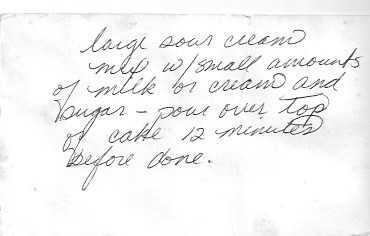 large sour cream
mix w/small amounts
of milk or cream and
sugar - pour over top
of cake 12 minutes
before done.